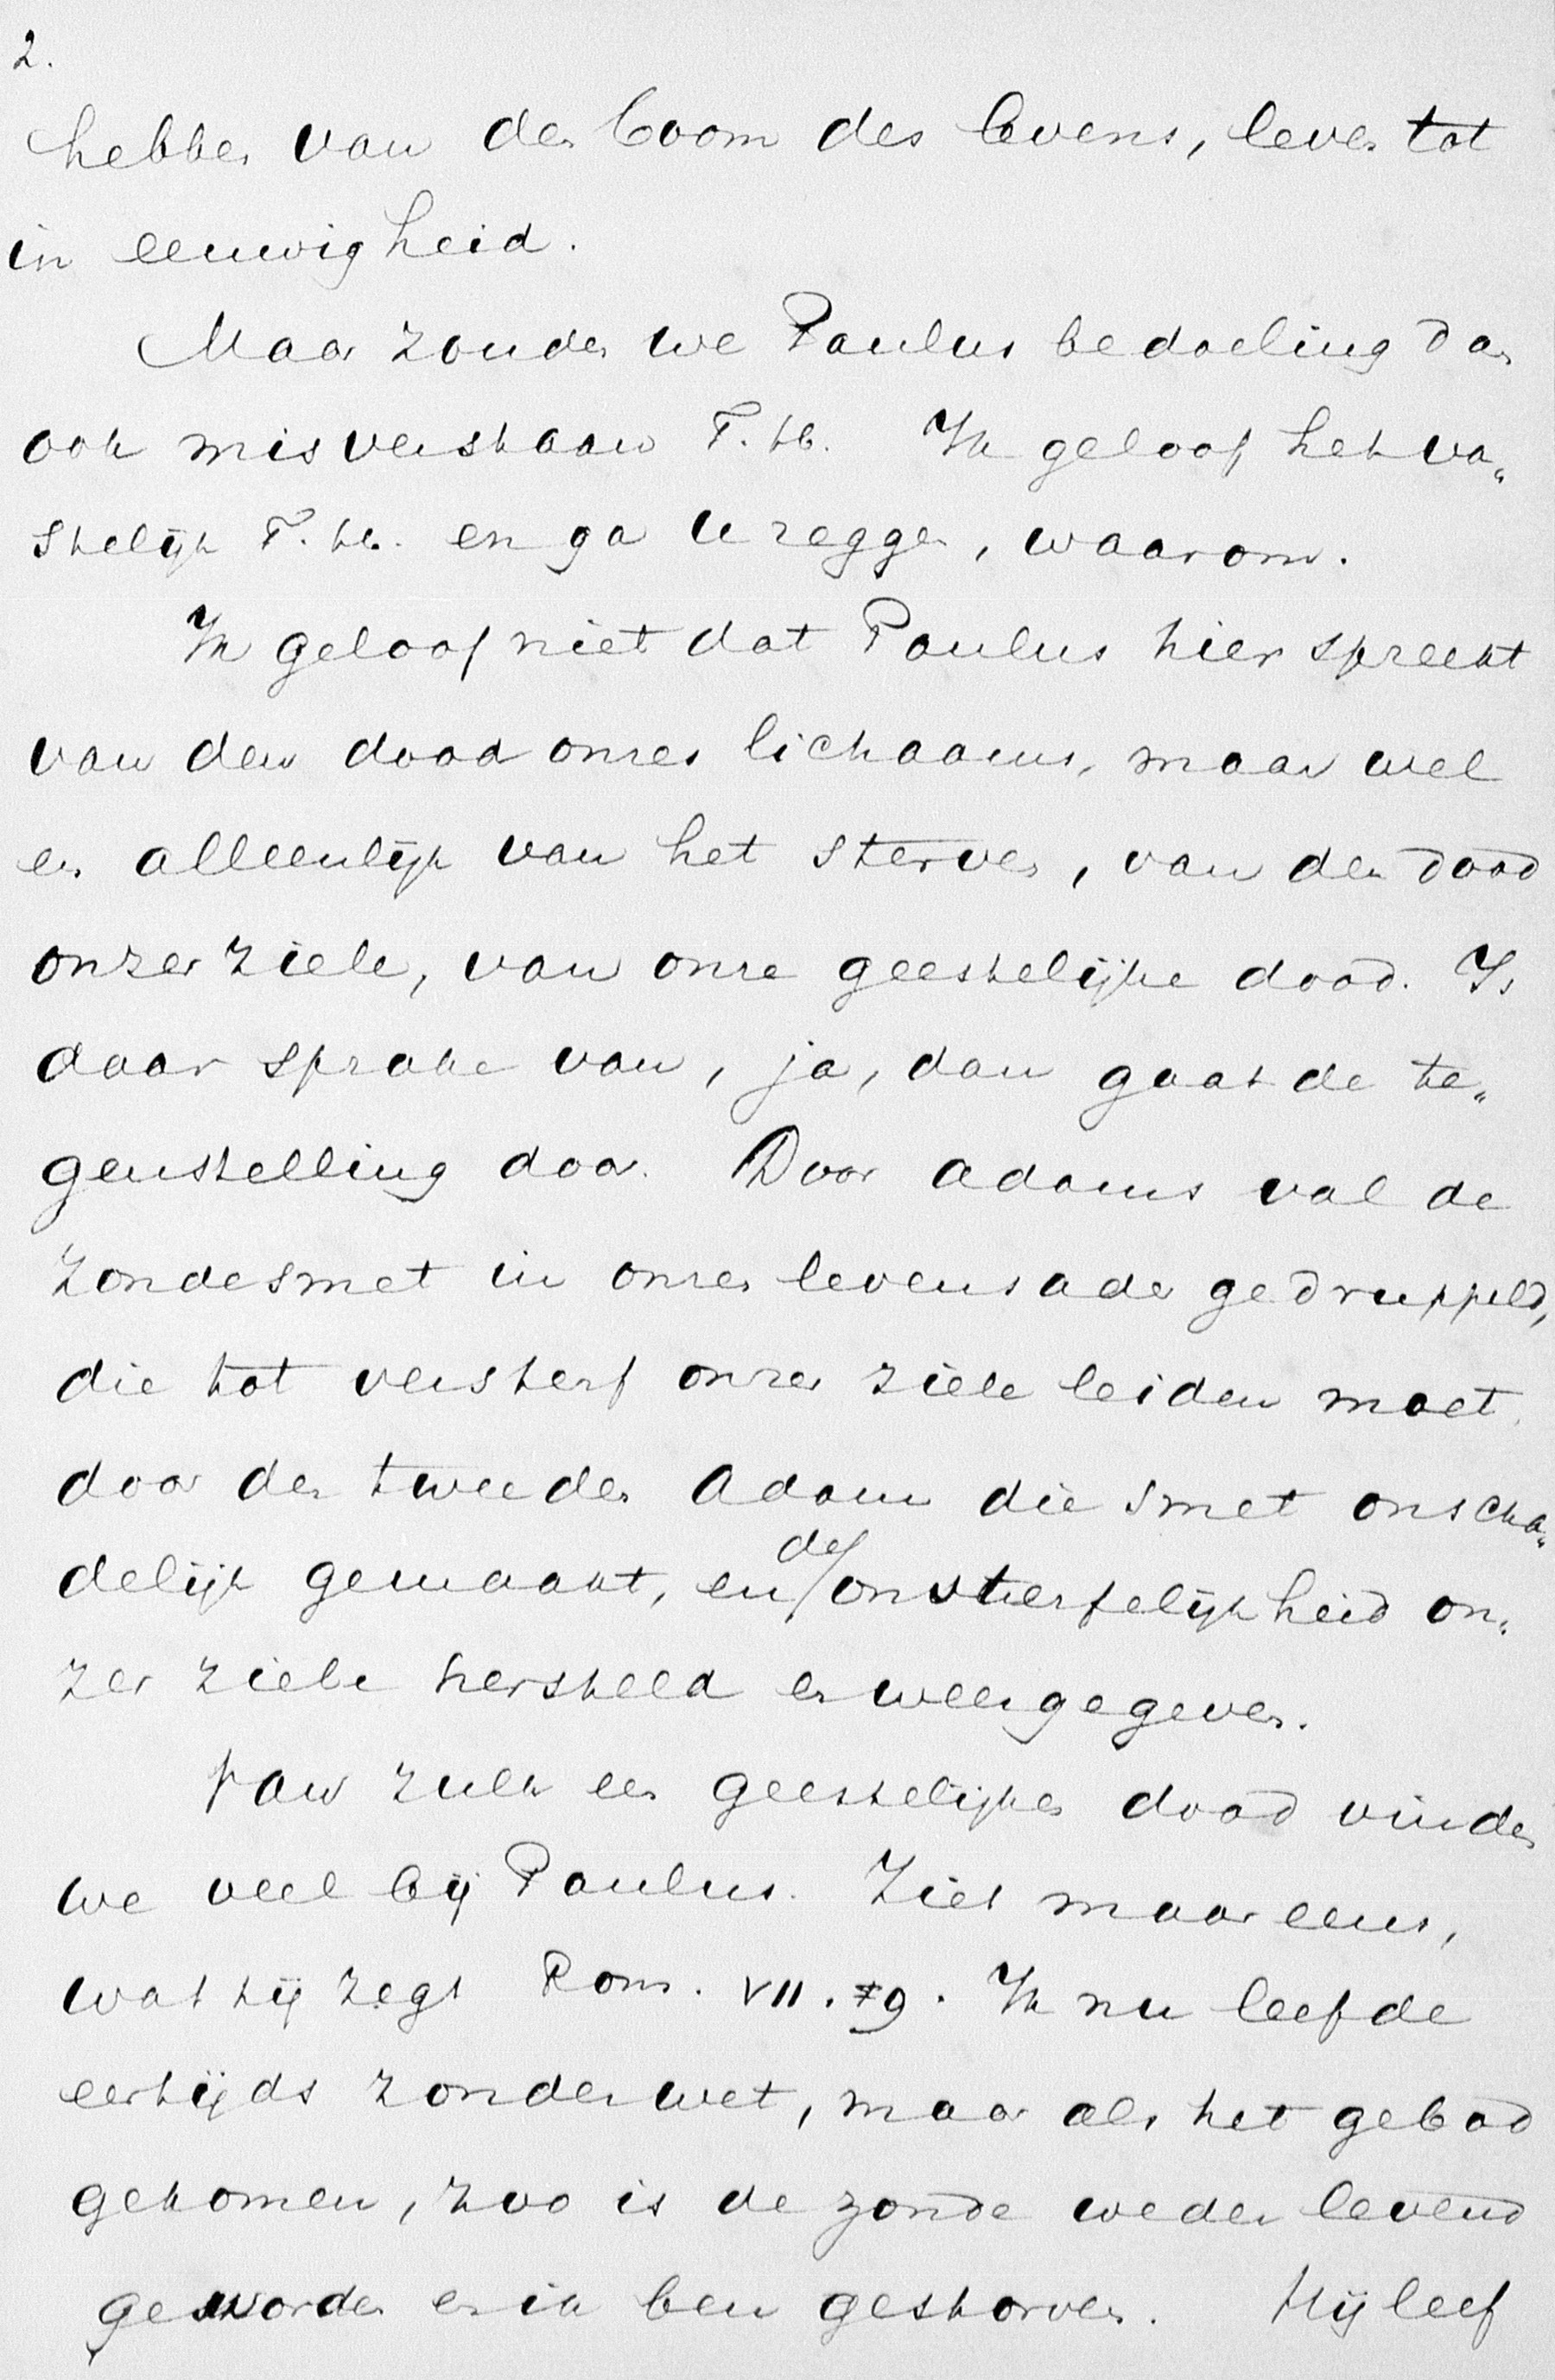 2.
hebben van den boom des levens, leven tot
in eeuwigheid.
Maar zouden we Paulus bedoeling dan
ook misverstaan T. H. Ik geloof het va„
stelijk T. H. en ga U zeggen, waarom.
Ik geloof niet dat Paulus hier spreekt
van den dood onzes lichaams, maar wel
en alleenlijk van het sterven, van den dood
onzer ziele, van onze geestelijke dood. Is
daar sprake van, ja, dan gaat de te„
genstelling door. Door Adams val de
zondesmet in onzen levensader gedruppeld,
die tot versterf onzer ziele leiden moet.
door den tweeden Adam die smet onscha„
delijk gemaakt, en de onsterfelijkheid on„
zer ziele hersteld en weergegeven.
Van zulk een geestelijken dood vinden
we veel bij Paulus. Ziet maar eens,
wat hij zegt Rom. VII. 9. Ik nu leefde
eertijds zonder wet, maar als het gebod
gekomen, zoo is de zonde weder levend
geworden en ik ben gestorven. Hij leef